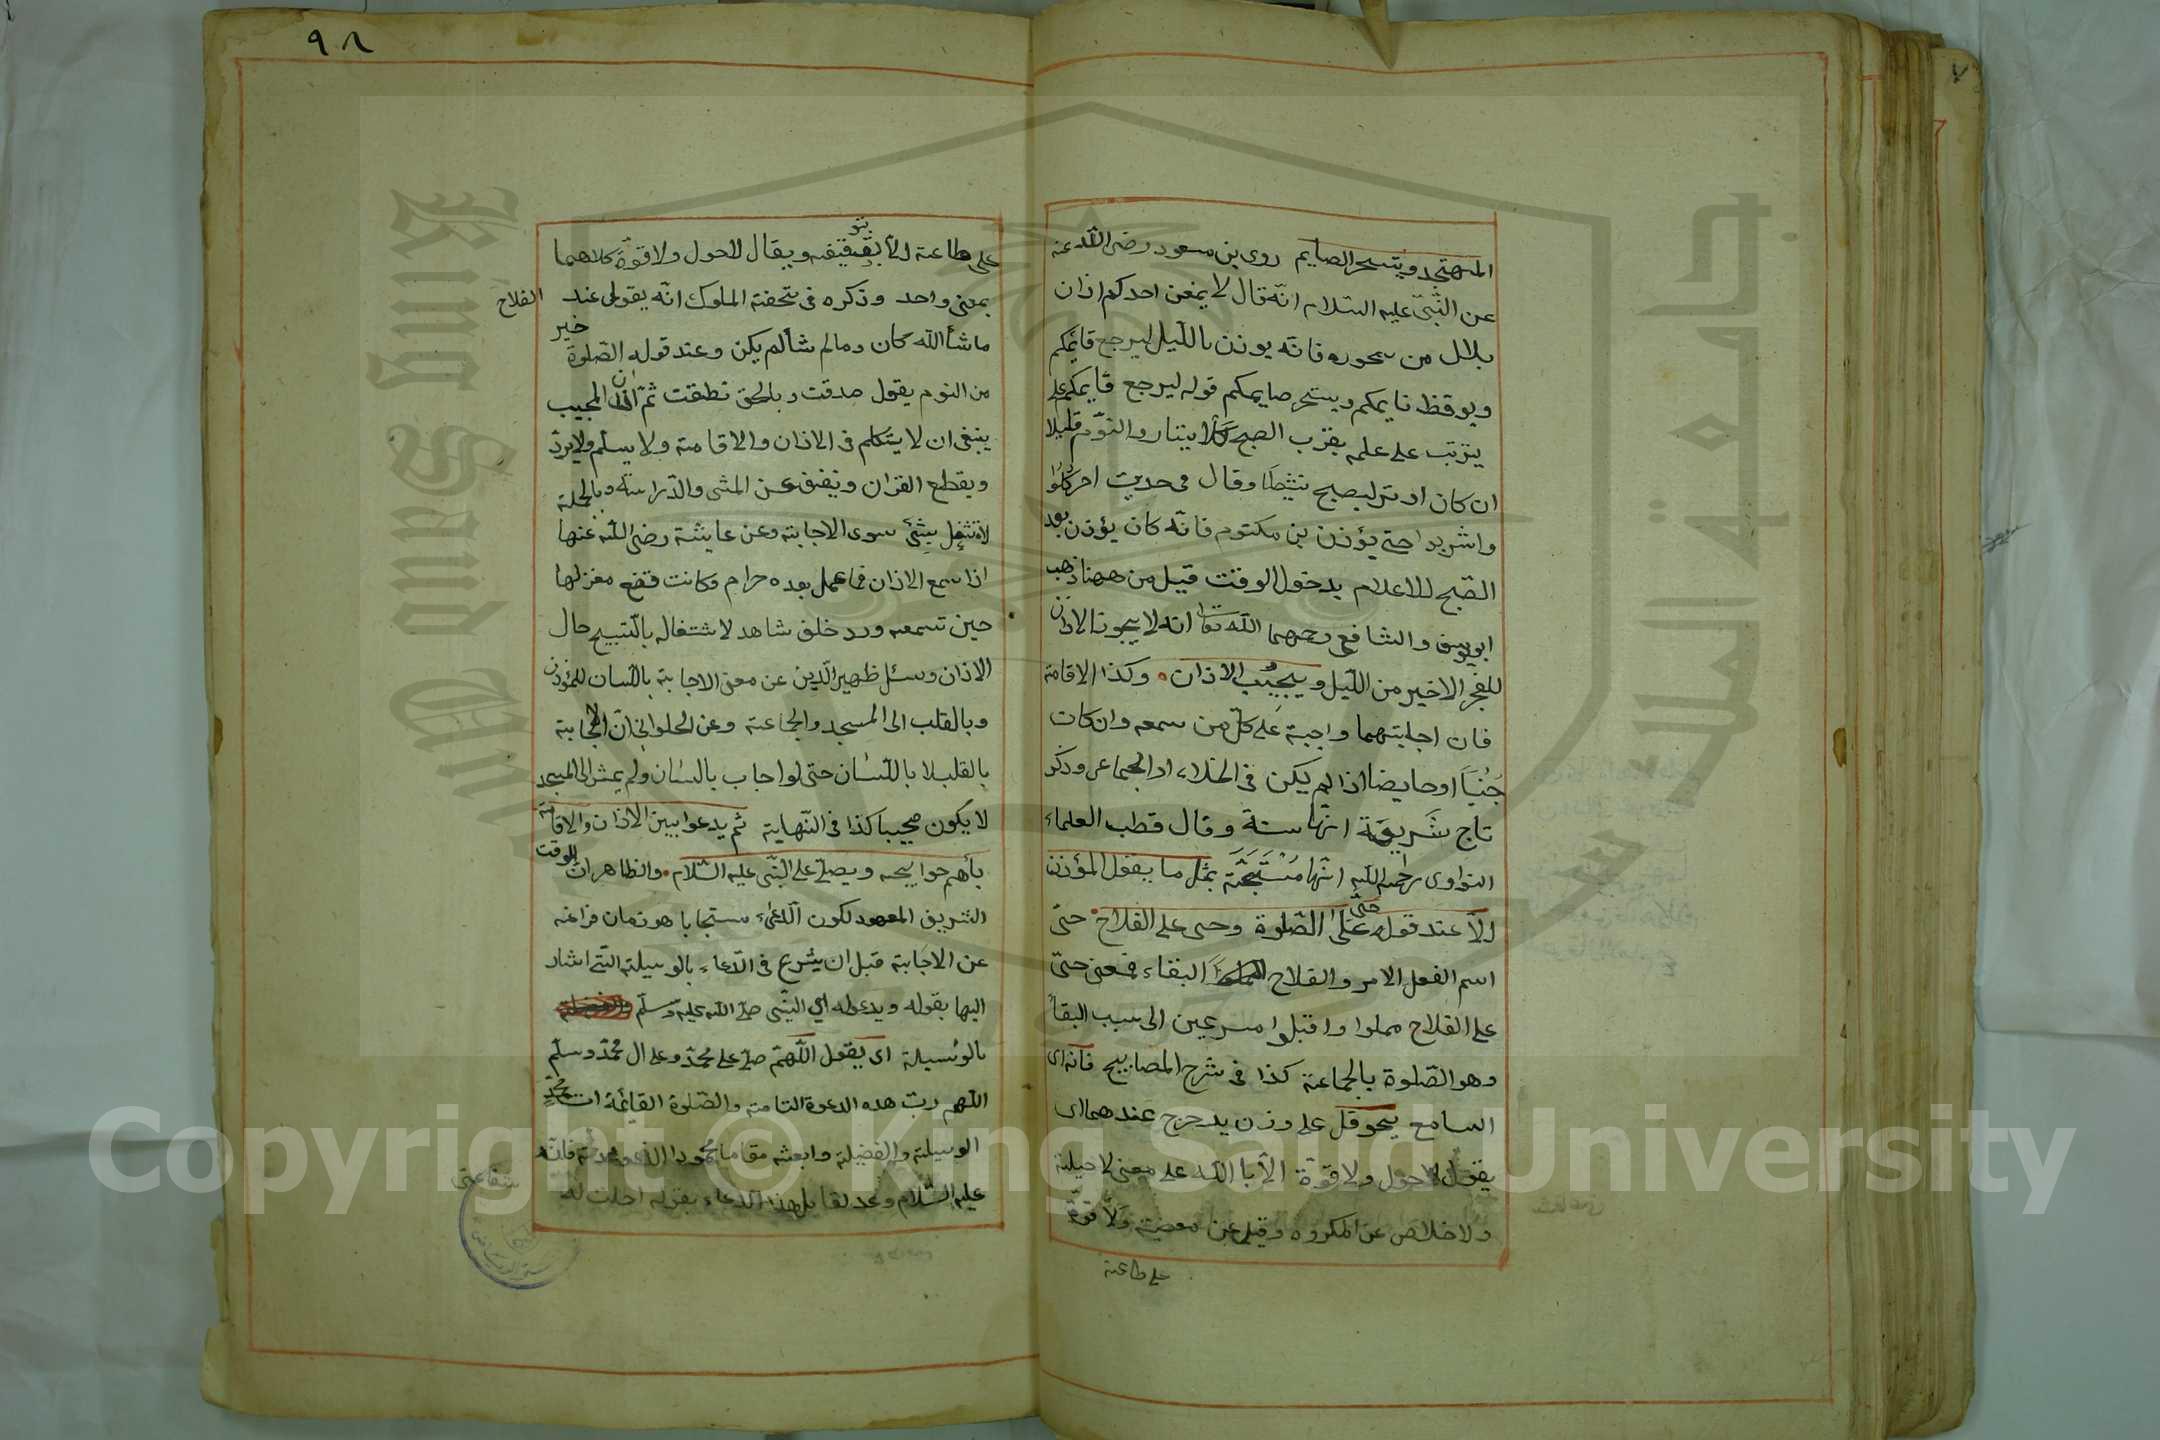 المتهجد ويتسحر الصايم روى بن مسعود رضى الله عنه
عن النبى عليه السلام انه قال لا يمنعن احدكم اذان
بلال من سحوره فانه يوذن بالليل ليرجع قايمكم
ويوقظ نايمكم ويتسحر صايمكم قوله ليرجع قايمكم على
يترتب على علمه بقرب الصبح والنوم قليلا
ان كان اوتر ليصبح نشيطا وقال فى حديث اخر كلوا
واشربوا حتى يؤذن بن مكتوم فانه كان يؤذن بعد
الصبح للاعلام بدخول الوقت قيل من ههنا ذهب
ابو يوسف والشافعى رحمهما الله تعالى انه لا يجوز الاذان
للفجر الاخير من الليل ويجيب الاذان وكذا الاقامة
فان اجابتهما واجبة على كل من سمعه وان كان
جنبا او حايضا اذا لم يكن فى الخلاء او الجماع وذكر
تاج شريعة انها سنة وقال قطب العلماء
النواوى رحمه الله انها مستحبة بمثل ما يقول المؤذن
الا عند قوله حى على الصلوة وحى على الفلاح حى
اسم الفعل الامر والفلاح البقاء فمعنى حى
على الفلاح هملوا واقبلوا مسرعين الى سبب البقاء
وهو الصلوة بالجماعة كذا فى شرح المصابيح فانه اى
السامع يحوقل على وزن يدحرج عندهما اى
يقول لا حول ولا قوة الا بالله على معنى لا حيلة
ولا خلاص عن المكروه وقيل عن معصية ولا قوة
على طاعة
٩٨
على طاعة الا بتوفيقه ويقال لا حول ولا قوة كلاهما
بمعنى واحد وذكره فى تحفة الملوك انه يقول عند الفلاح
ما شأ الله كان وما لم شألم يكن وعند قوله الصلوة خير
من النوم يقول صدقت وبالحق نطقت ثم ان المجيب
ينبغى ان لا يتكلم فى الاذان والاقامة ولا يسلم ولا يرد
ويقطع القران ويقف عن المشى والدراسة وبالجملة
لا يشغل بشئ سوى الاجابة وعن عايشة رضى الله عنها
اذا سمع الاذان فما عمل بعده حرام وكانت تضع مغزلها
حين تسمعه ورد خلف شاهد لاشتغاله بالنسيج حال
الاذان وسئل ظهير الدين عن معنى الاجابة باللسان للمؤذن
وبالقلب الى المسجد والجماعة وعن الحلوانى ان الاجابة
بالقلب لا باللسان حتى لو اجاب باللسان ولم يمش الى المسجد
لا يكون مجيبا كذا فى النهاية ثم يدعوا بين الاذان والاقامة
بأهم حوايجه ويصلى على النبى عليه السلام والظاهر ان الوقت
الشريف المعهود لكون الدعاء مستجابا هو زمان فراغه
عن الاجابة قبل ان يشرع فى الدعاء بالوسيلة التى اشار
اليها بقوله ويدعو له اى النبى صلى الله عليه وسلم
بالوسيلة اى يقول اللهم صل على محمد وعلى ال محمد وسلم
اللهم رب هذه الدعوة التامة والصلوة القايمة ات محمد
الوسيلة والفضيلة وابعثه مقاما محمودا الذى وعدته فانه
عليه السلام وعد لقايل هذا الدعاء بقوله احلت له
شفاعتى
Copyright © King Saud University
King Saud University
جامعة الملك سعود